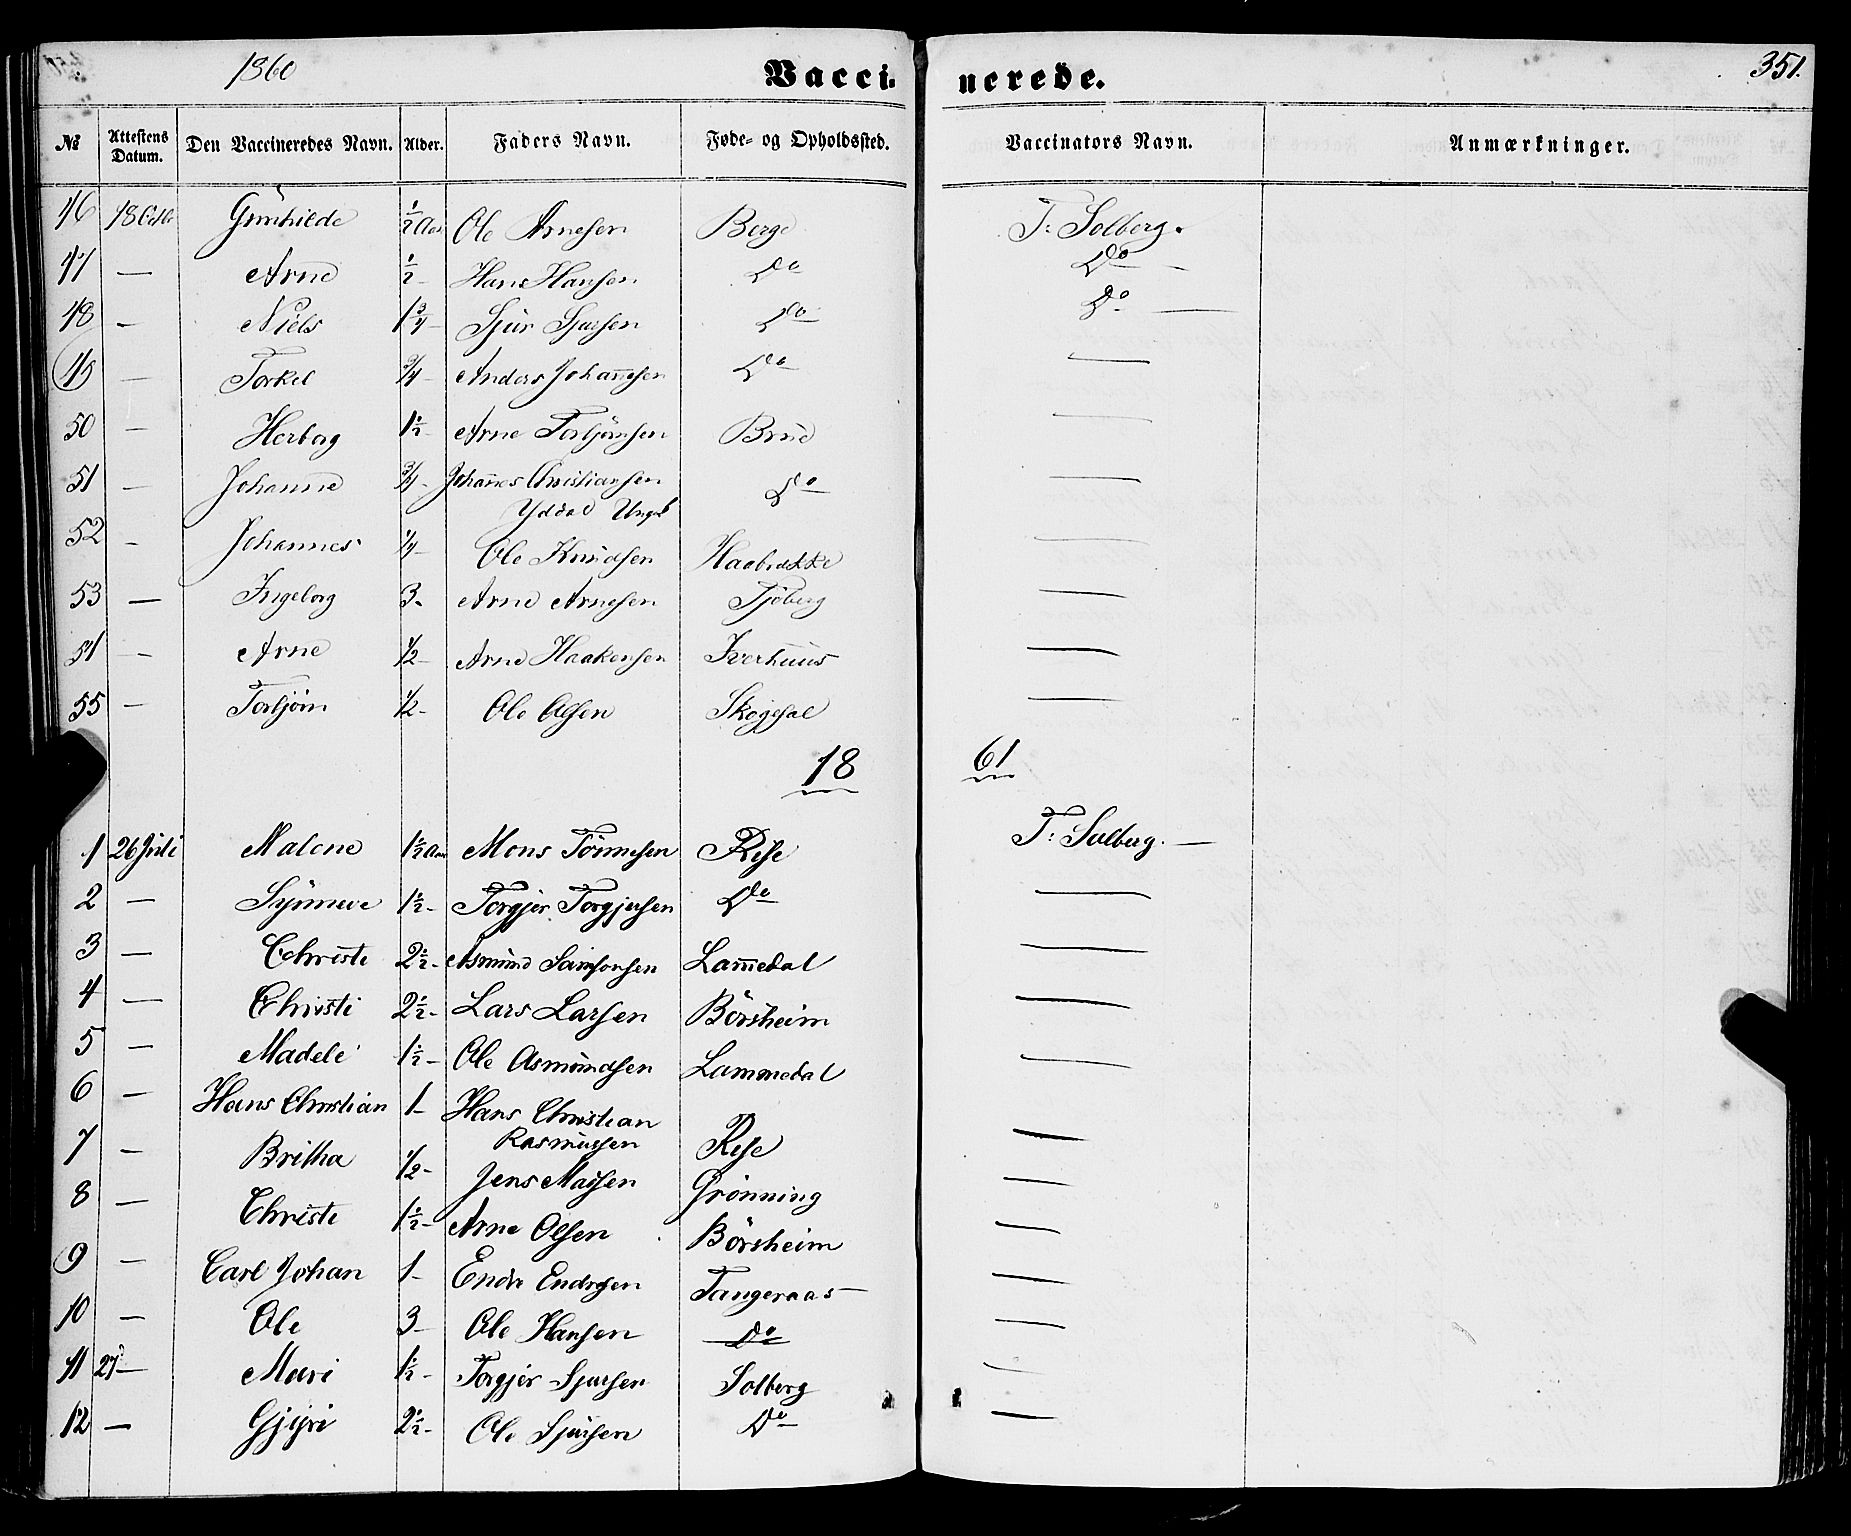 1860 Vacci- nerede. 351.
№ Attestens Datum. Den Vaccineredes Navn. Alder. Faders Navn. Føde- og Opholdssted. Vaccinators Navn. Anmærkninger.
46 18 Octbr Gunhilde ½ Aar Ole Arnesen Berge T: Solberg.
47 — Arne ½ Hans Hansen Do Do —
48 — Niels 1¾ Sjur Sjursen Do Do —
49 — Torkel ¾ Anders Johannesen Do —
50 — Herborg 1½ Arne Torbjönsen Brue —
51 — Johanne ¾ Johannes Christiansen Do —
Yddal Ungk
52 — Johannes ¼ Ole Knudsen Haabrekke —
53 — Ingeborg 3 Arne Arnesen Tjöberg —
54 — Arne ½ Arne Haakensen Iverhuus —
55 — Torbjörn ½ Ole Olsen Skogesal —
18 61
1 26 Juli Malene 1½ Aar Mons Tönnesen Rese T: Solberg. —
2 — Synneve 1½ Torgjer Torgjersen Do —
3 — Christi 2½ Asmund Samsonsen Lammedal —
4 — Christi 2½ Lars Larsen Börsheim —
5 — Madele 1½ Ole Asmundsen Lammedal —
6 — Hans Christian 1 Hans Christian
Rasmussen Rese —
7 — Britha ½ Jens Matsen Grönning —
8 — Christi 1½ Arne Olsen Börsheim —
9 — Carl Johan 1 Endre Endresen Tangeraas —
10 — Ole 3 Ole Hansen Do —
11 27 — Mari 1½ Torgjer Sjursen Solberg —
12 — Gjyri 2½ Ole Sjursen Do —